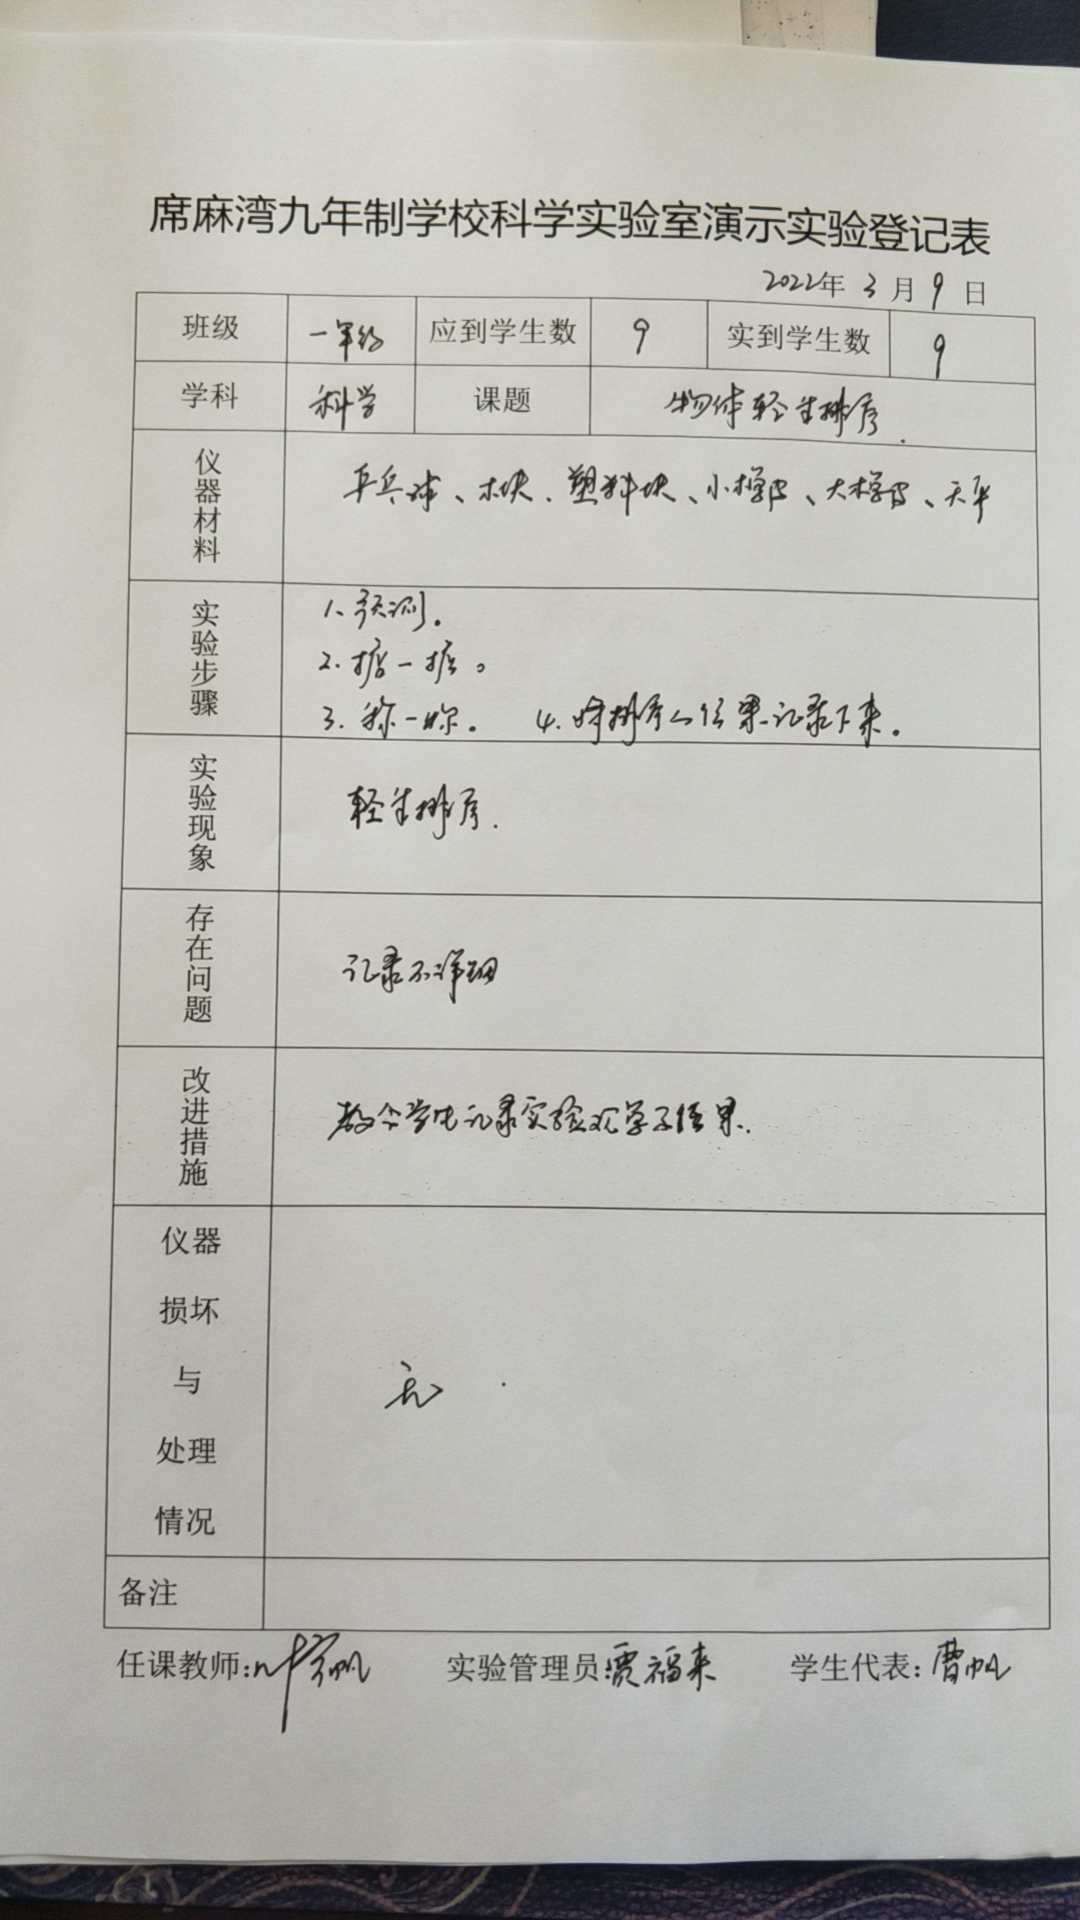 席麻湾九年制学校科学实验室演示实验登记表
2022年 3 月 9 日
班级 一年级 应到学生数 9 实到学生数 9
学科 科学 课题 物体轻重排序.
仪器材料 乒乓球、木块、塑料块、小橡皮、大橡皮、天平
实验步骤 1、预测。
2. 掂一掂。
3. 称一称。 4. 将排序的结果记录下来。
实验现象 轻重排序.
存在问题 记录不详细
改进措施 教会学生记录实验观学及结果.
仪器
损坏
与
处理
情况
无
备注
任课教师:叶 帆 实验管理员:贾福来 学生代表:曹帆